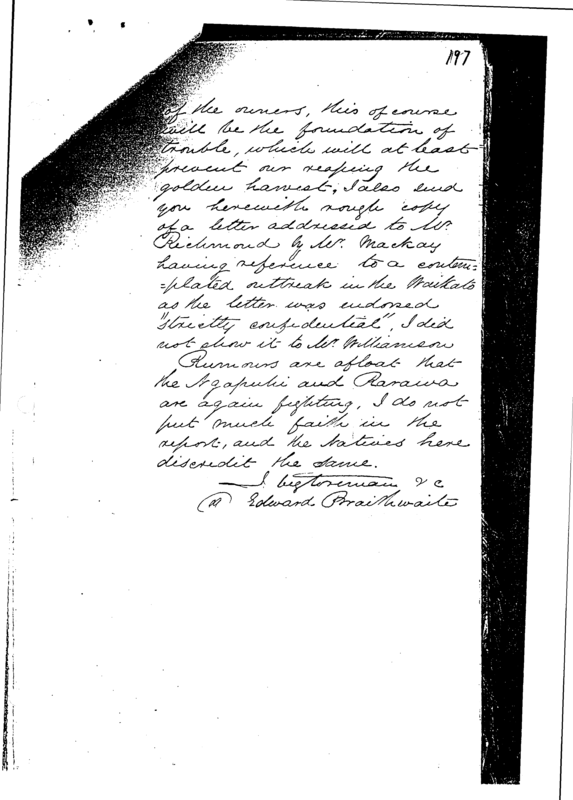 197
of the owners, this of course
will be the foundation of
trouble, which will at least
prevent our reaping the
golden harvest; I also send
you herewith rough copy
of a letter addressed to Mr.
Richmond by Mr. Mackay
having reference to a contem=
=plated outreak in the Waikato
as the letter was endorsed
"strictly confidential", I did
not show it to Mr Williamson
Rumours are afloat that
the Ngapuhi and Rarawa
are again fighting, I do not
put much faith in the
report, and the Natives here
discredit the same.
&c
Edward Braithwaite